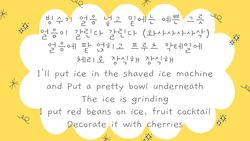 빙수기 얼음 넣고 밑에는 예쁜 그릇
얼음이 갈린다 갈린다 (와사사사사삭)
얼음에 팥 얹히고 프루츠 칵테일에
체리로 장식해 장식해
I'll put ice in the shaved ice machine
and Put a pretty bowl underneath
The ice is grinding
I put red beans on ice, fruit cocktail
Decorate it with cherries